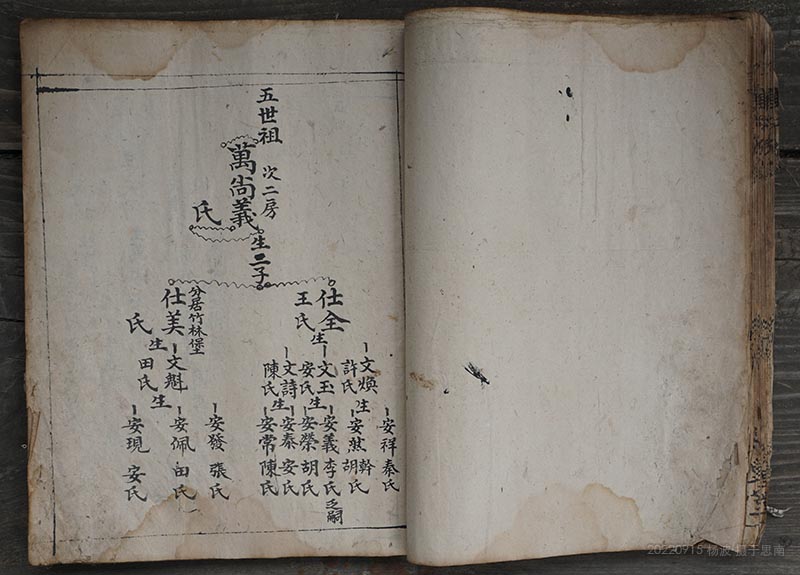 五世祖
次二房
萬尚義
氏
生二子
仕全
王氏
生
文煥
許氏
生
安祥 秦氏
安幹 胡氏
文玉
安氏
生
安義 李氏 乏嗣
安榮 胡氏
文詩
陳氏
生
安泰 安氏
安常 陳氏
分居竹林堡
仕美
氏
生
文魁
田氏
生
安發 張氏
安佩 田氏
安現 安氏
20220915 杨波 摄于思南